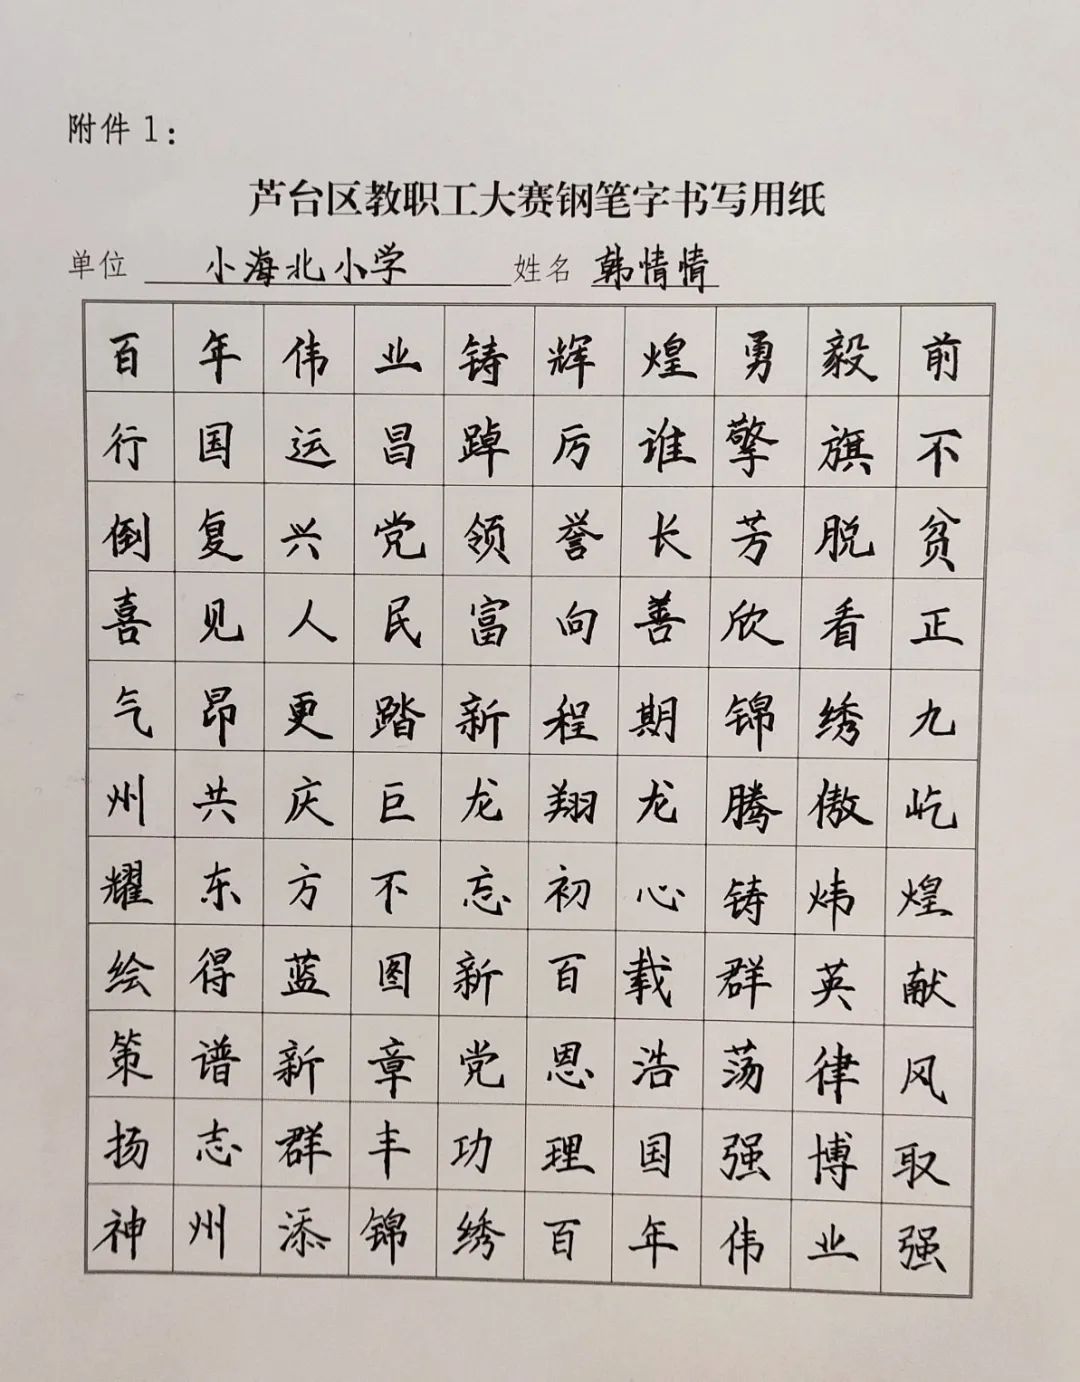 附件1：
芦台区教职工大赛钢笔字书写用纸
单位 小海北小学 姓名 韩情情
百年伟业铸辉煌勇毅前
行国运昌踔厉谁擎旗不
倒复兴党领誉长芳脱贫
喜见人民富向善欣看正
气昂更踏新程期锦绣九
州共庆巨龙翔龙腾傲屹
耀东方不忘初心铸炜煌
绘得蓝图新百载群英献
策谱新章党恩浩荡律风
扬志群丰功理国强博取
神州添锦绣百年伟业强